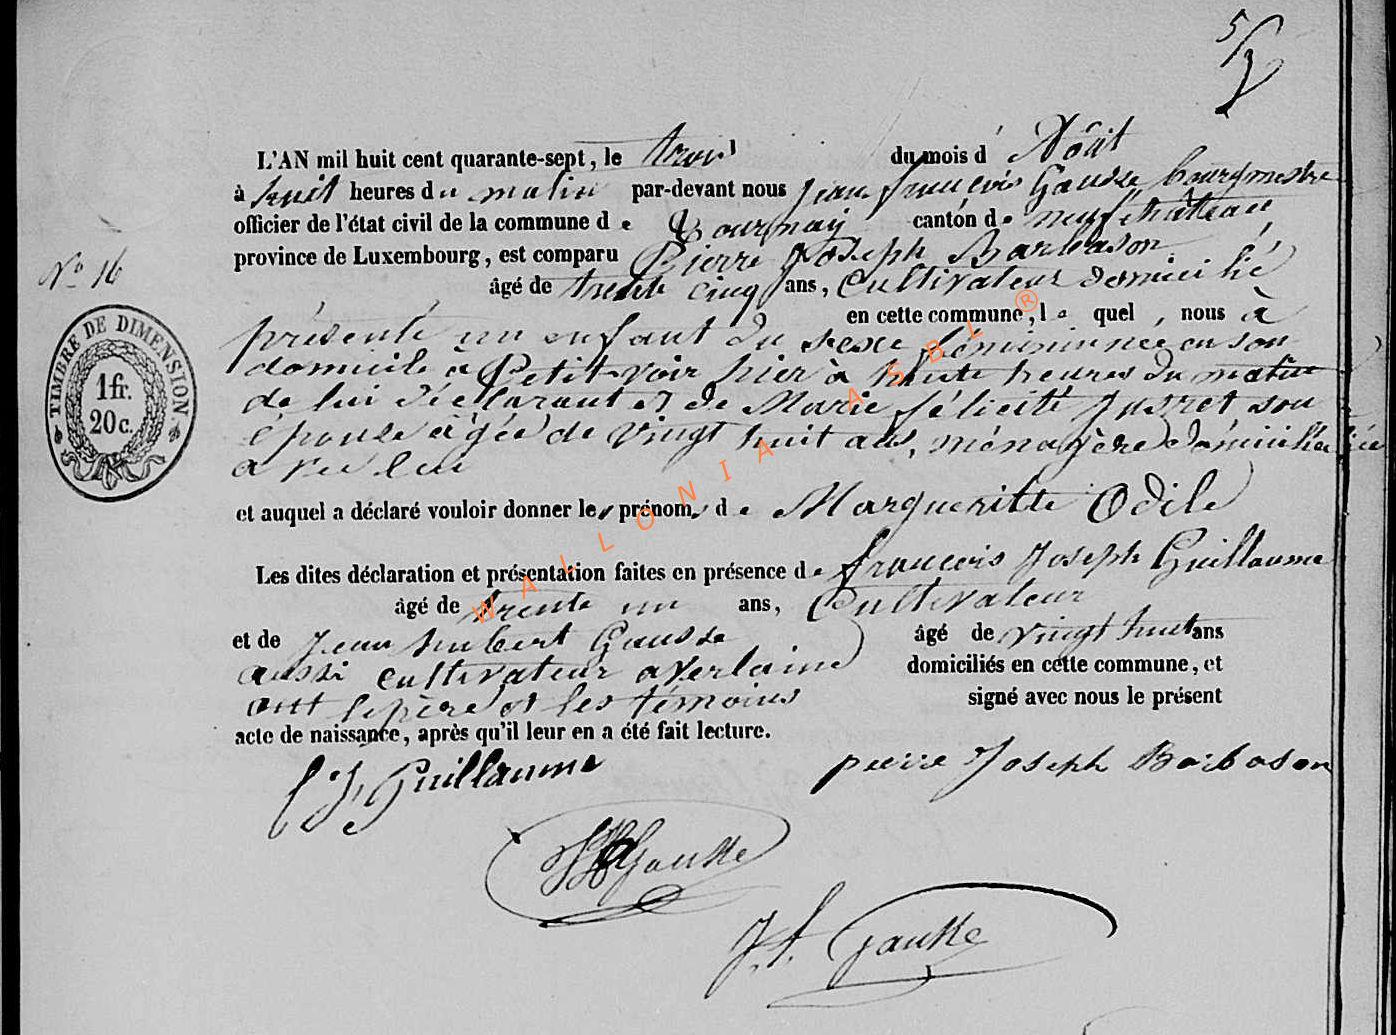 5/
L'AN mil huit cent quarante-sept, le trois du mois d' Aôut
à huit heures du matin par-devant nous jean françois Gausse bourgmestre
officier de l'état civil de la commune de Tournay cantón de neufchâteau
province de Luxembourg, est comparu Pierre Joseph Barbason
No 16
âgé de trente cinq ans, Cultivateur domicilié
en cette commune, le quel, nous à
présenté un enfant du sexe féminin née en son
domicile à Petitvoir hier à heures du matin
de lui déclarant et de Marie félicité son
épouse âgée de vingt huit ans, ménagère domiciliée
avec lui
TIMBRE DE DIMENSION
1fr.
20c.
et auquel a déclaré vouloir donner les prénoms de Margueritte Odile
Les dites déclaration et présentation faites en présence de françois Joseph Guillaume
âgé de trente un ans, Cultivateur
et de Jean hubert Gausse âgé de vingt huit ans
aussi cultivateur a verlaine domiciliés en cette commune, et
ont le père et les témoins signé avec nous le présent
acte de naissance, après qu'il leur en a été fait lecture.
f J Guillaume pierre Joseph Barbason
Gausse
J. f. Gausse
WALLONIA ASBL ®